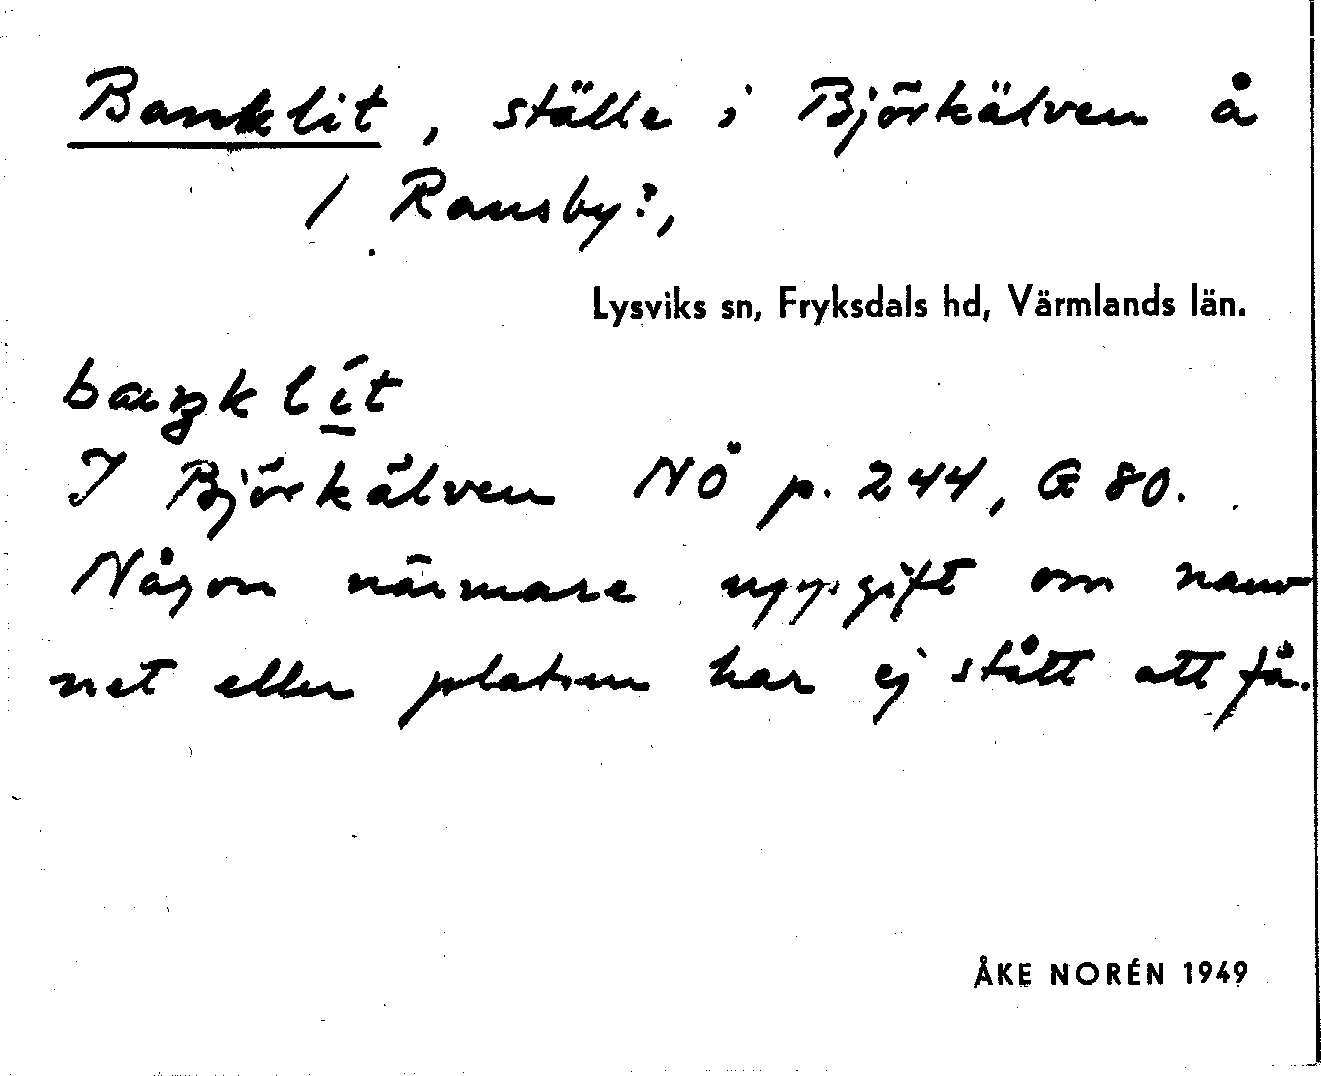 Banklit, ställe i Björkälven å
/ Ransby:,
Lysviks sn, Fryksdals hd, Värmlands län.
baŋklít
I Björkälven NÖ p. 244, G 80.
Någon närmare uppgift om nam-
net eller platsen har ej stått att få.
ÅKE NORÉN 1949